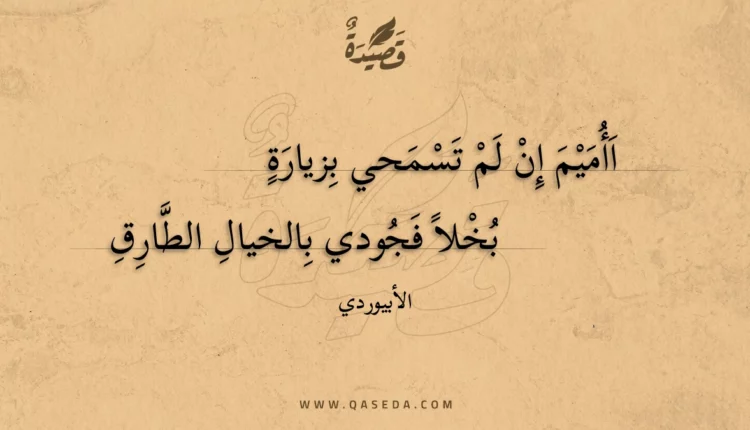 قَصِيْدَةٌ
اَأُمَيْمَ إِنْ لَمْ تَسْمَحي بِزيارَةٍ
بُخْلاً فَجُودي بِالخيالِ الطَّارِقِ
الأبيوردي
WWW.QASEDA.COM